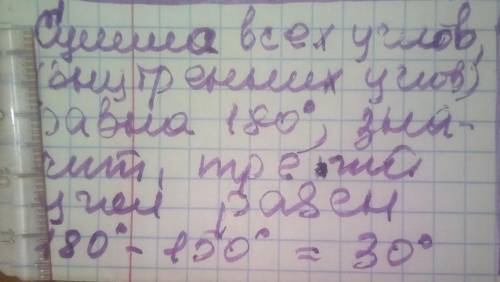 Сумма всех углов,
(внутренних углов)
равна 180°, зна-
чит, третий
угол равен
180° - 150° = 30°